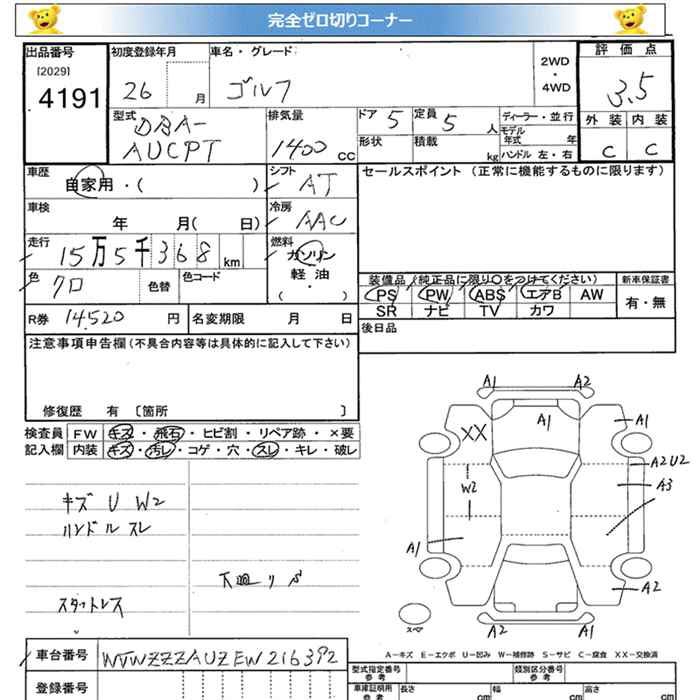 完全ゼロ切りコーナー
出品番号 初度登録年月 車名・グレード 評価点
[2029]
4191 26 月 ゴルフ 2WD・4WD 3.5
型式 DBA-AUCPT 排気量 1400 CC ドア 5 定員 5 人 ディーラー・並行 外装 内装
形状 積載 kg モデル年式 年 C C
ハンドル 左・右
車歴 自家用・( ) シフト AT セールスポイント (正常に機能するものに限ります)
車検 年 月( 日) 冷房 AAC
走行 15万5千368 km 燃料 ガソリン 軽・油 ( )
色 クロ 色替 色コード 装備品 (純正品に限り○をつけてください) 新車保証書
PS PW ABS エアB AW 有・無
SR ナビ TV カワ
R券 14,520 円 名変期限 月 日 後日品
注意事項申告欄 (不具合内容等は具体的に記入して下さい)
修復歴 有 [箇所 ]
検査員 FW キズ・飛石・ヒビ割・リペア跡・×要
記入欄 内装 キズ・汚レ・コゲ・穴・スレ・キレ・破レ
キズ U W2
ハンドル スレ
下廻リサビ
スタットレス
A1 A2
A1 A1
XX
A2 U2
W2 A3
A1
A2
A2 A1
スペア
A-キズ E-エクボ U-凹み W-補修跡 S-サビ C-腐食 XX-交換済
車台番号 WVWZZZAUZEW216392 型式指定番号 参考 類別区分番号 参考
登録番号 車庫証明用 参考 長さ cm 幅 cm 高さ cm